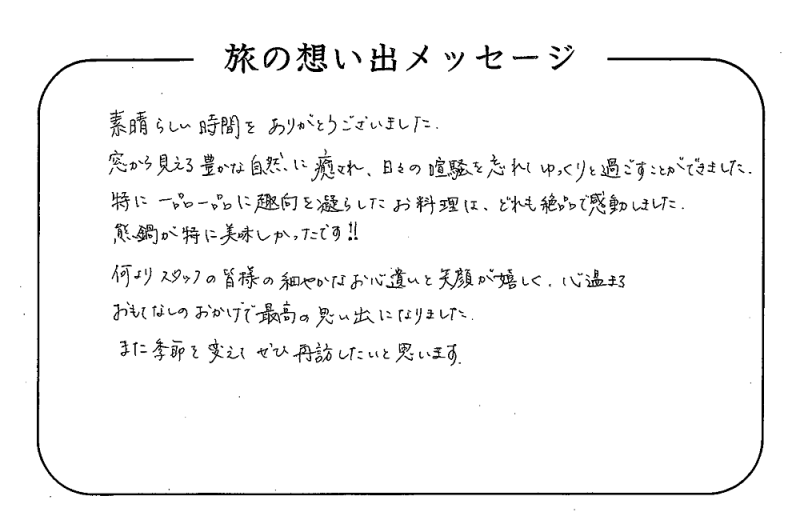 旅の想い出メッセージ
素晴らしい時間をありがとうございました.
窓から見える豊かな自然に癒され、日々の喧騒を忘れてゆっくりと過ごすことができました.
特に一品一品に趣向を凝らしたお料理は、どれも絶品で感動しました.
熊鍋が特に美味しかったです!!
何よりスタッフの皆様の細やかなお心遣いと笑顔が嬉しく、心温まる
おもてなしのおかげで最高の思い出になりました.
また季節を変えてぜひ再訪したいと思います.